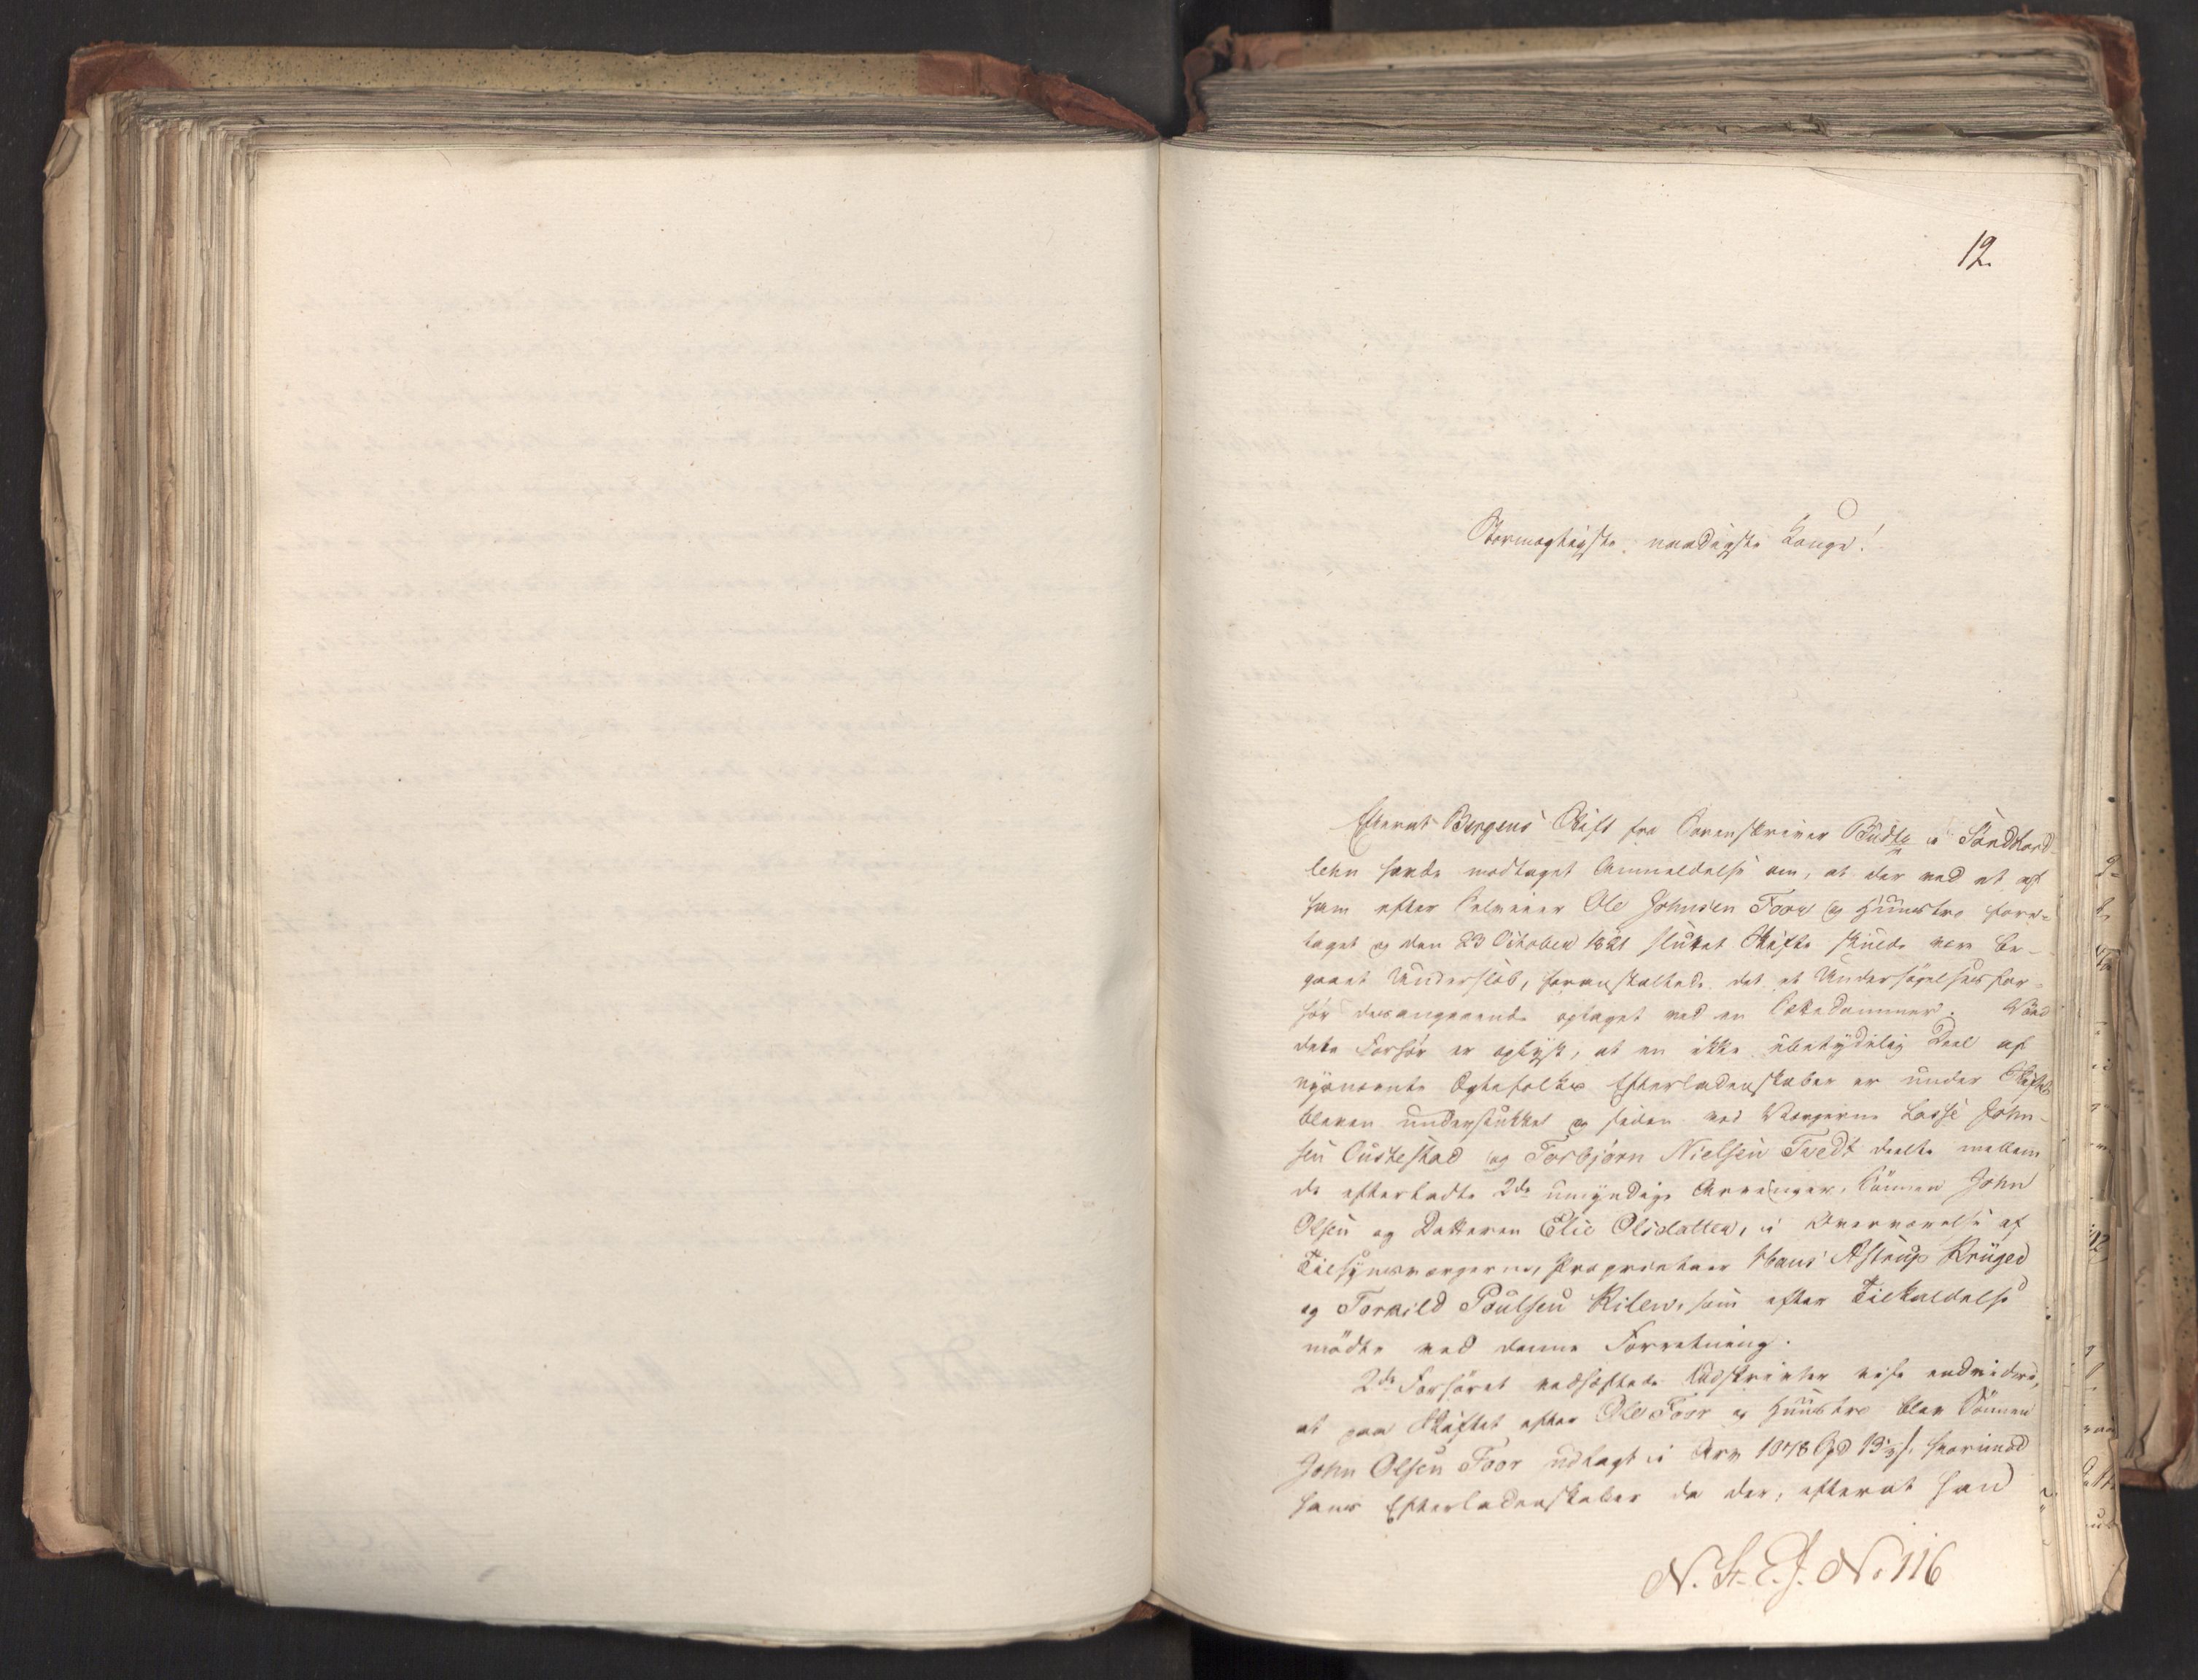 12.
Stormægtigste, naadigste Konge!
Efterat Bergens Stift fra Sorenskriver Budtz i Söndhord-
lehn havde modtaget Anmeldelse om, at der ved et af
ham efter Selveier Ole Johnsen Foor og Huustro fore-
taget og den 23 October 1821 sluttet Skifte skulde være be-
gaaet Underslæb, foranstaltede det et Undersögelsesfor-
hör desangaaende optaget ved en Sættedommer. Ved
dette Forhör er oplyst, at en ikke ubetydelig Deel af
nysnævnte Ægtefolks Efterladenskaber er under Skiftet
bleven understukket og siden ved Værgerne Lasse John-
sen Oustestad og Torbjørn Nielsen Tvedt deelte mellem
de efterladte 2de umyndige Arvinger, Sönnen John
Olsen og Datteren Elie Olsdatter, i Overværelse af
Tilsynsværgerne, Proprietair Hans Astrup Krüger
og Torkild Poulsen Rilen, som efter Tilkaldelse
mödte ved denne Forretning.
2de Forhöret vedhæftede Udskrivter vise endvidere,
at paa Skiftet efter Ole Foor og Huustro blev Sönnen
John Olsen Foor udlagt i Arv 1078 Spd 13½ s. hvorimod
hans Efterladenskaber da der, efterat han
N. St. E. J. No 116